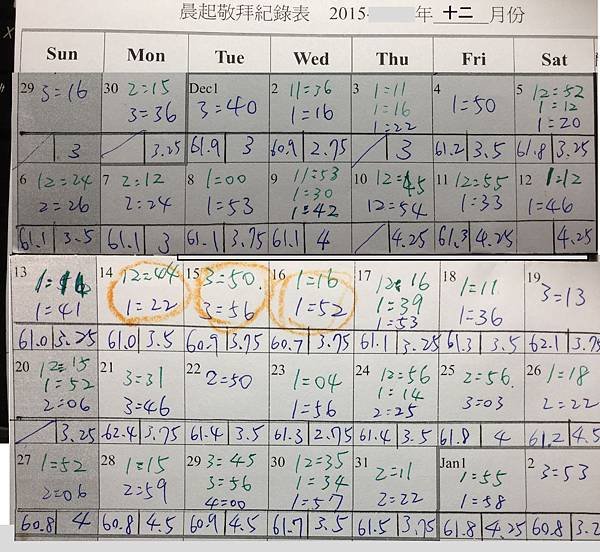 晨起敬拜紀錄表 2015- 年 十二 月份
Sun Mon Tue Wed Thu Fri Sat
29 3:16
30 2:15 3:36
Dec1 3:40
2 11:36 1:16
3 1:11 1:16 1:22
4 1:50
5 12:52 1:12 1:20
3 3.25 61.9 3 60.9 2.75 3 61.2 3.5 61.8 3.25
6 12:24 2:26
7 2:12 2:24
8 1:00 1:53
9 11:53 1:30 1:42
10 12:45 12:54
11 12:55 1:33
12 1:12 1:46
61.1 3.5 61.1 3 61.1 3.75 61.1 4 4.25 61.3 4.25 4.25
13 1:41
14 12:44 1:22
15 3:50 3:56
16 1:16 1:52
17 12:16 1:39 1:53
18 1:11 1:36
19 3:13
61.0 3.25 61.0 3.5 60.9 3.75 60.7 3.75 61.1 3.25 61.3 3.5 62.1 3.75
20 12:15 1:52 2:06
21 3:31 3:46
22 2:50
23 1:04 1:56
24 12:56 1:14 2:25
25 2:56 3:03
26 1:18 2:22
3.25 62.4 3.75 61.4 3.5 61.3 2.75 61.4 3.5 61.8 4 61.2 4.5
27 1:52 2:06
28 1:15 2:59
29 3:45 3:56 4:00
30 12:35 1:34 1:57
31 2:11 2:22
Jan1 1:55 1:58
2 3:53
60.8 4 60.8 4.5 60.9 4.5 61.7 3.5 61.5 3.75 61.8 4.25 60.8 3.2